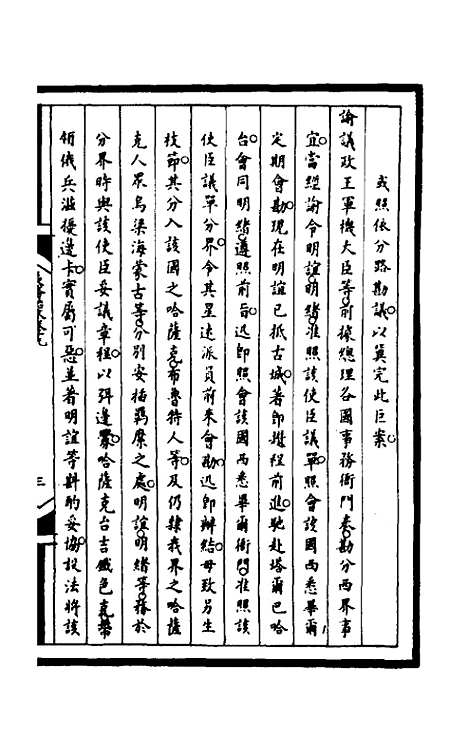 或照依分路勘議。以冀完此巨案。
諭議政王軍機大臣等。前據總理各國事務衙門奏。勘分西界事
宜。當經諭令明誼。明緒。准照該使臣議單。照會該國西悉畢爾
定期會勘。現在明誼已抵古城。著即趲程前進。馳赴塔爾巴哈
台。會同明緒。遵照前旨。迅即照會該國西悉畢爾衙門。准照該
使臣議單分界。令其星速派員前來會勘。迅即辦結。毋致另生
枝節。其分入該國之哈薩克。布魯特人等。及仍隸我界之哈薩
克人眾烏梁海蒙古等。分別安插羈縻之處。明誼。明緒等。務於
分界時與該使臣妥議章程。以弭邊釁。哈薩克台吉鐵色克帶
領俄兵滋擾邊卡。實屬可惡。並著明誼等斟酌妥協。設法將該
三